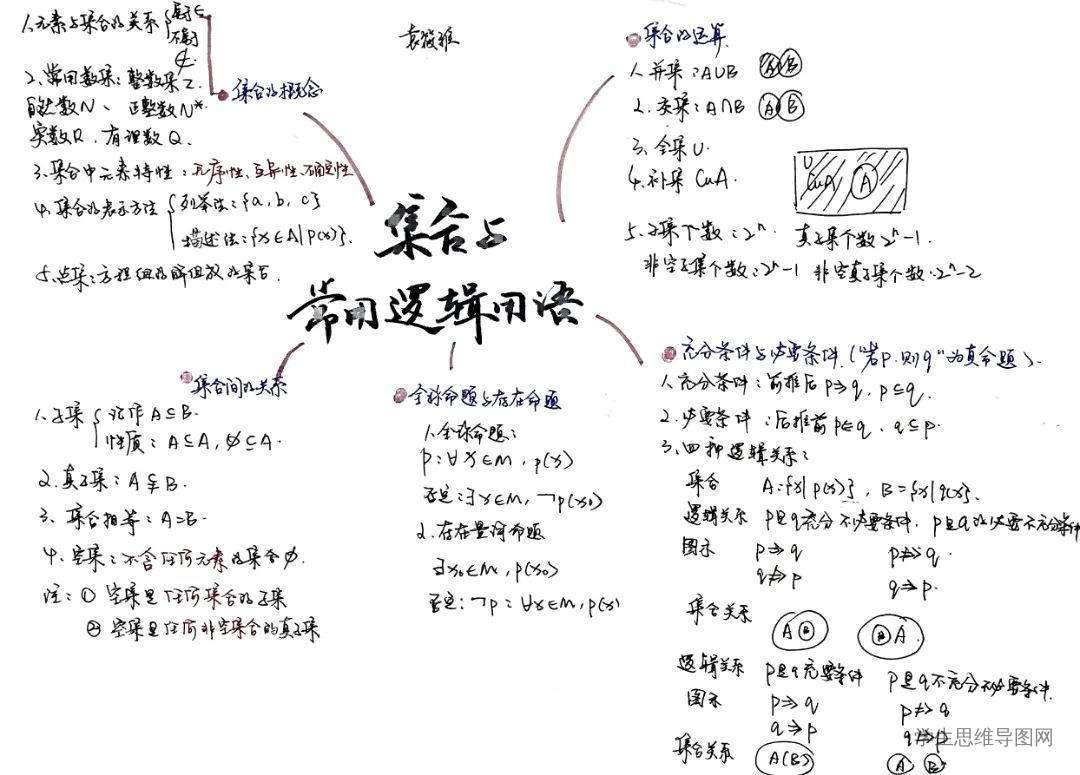 袁筱雅
集合与
常用逻辑用语
集合的概念
1.元素与集合的关系{属于∈
不属于
∉
2.常用数集:整数集Z.
自然数N、正整数N*.
实数R.有理数Q.
3.集合中元素特性:无序性、互异性、确定性
4.集合的表示方法{列举法:{a,b,c}
描述法:{x∈A|P(x)}.
5.点集:方程组的解组成的集合.
集合的运算
1.并集:A∪B A B
2.交集:A∩B A B
3.全集U.
4.补集 CuA.
U
CuA A
5.子集个数:2ⁿ. 真子集个数2ⁿ-1.
非空子集个数:2ⁿ-1 非空真子集个数:2ⁿ-2
集合间的关系
1.子集{记作A⊆B.
性质:A⊆A,∅⊆A.
2.真子集:A⫋B.
3.集合相等:A=B.
4.空集:不含任何元素的集合∅.
注:① 空集是任何集合的子集
② 空集是任何非空集合的真子集
全称命题与存在命题
1.全称命题:
p:∀x∈M,p(x)
否定:∃x∈M,¬p(x₀)
2.存在量词命题
∃x₀∈M,p(x₀)
否定:¬p:∀x∈M,p(x)
充分条件与必要条件(“若p.则q”为真命题).
1.充分条件:前推后p⇒q,p⊆q.
2.必要条件:后推前p⇐q.q⊆p.
3.四种逻辑关系:
集合 A={x|p(x)},B={x|q(x)}.
逻辑关系 p是q充分不必要条件.p是q的必要不充分条件
图示 p⇒q p⇏q.
q⇏p q⇒p.
集合关系 A B B A
逻辑关系 p是q充要条件 p是q不充分不必要条件.
图示 p⇒q p⇏q
q⇒p q⇏p
集合关系 A(B) A B
学生思维导图网